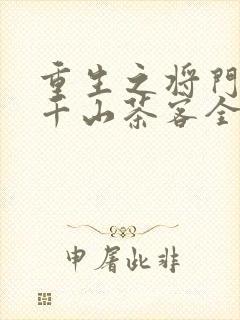 重生之将门
千山茶客全
申屠此非